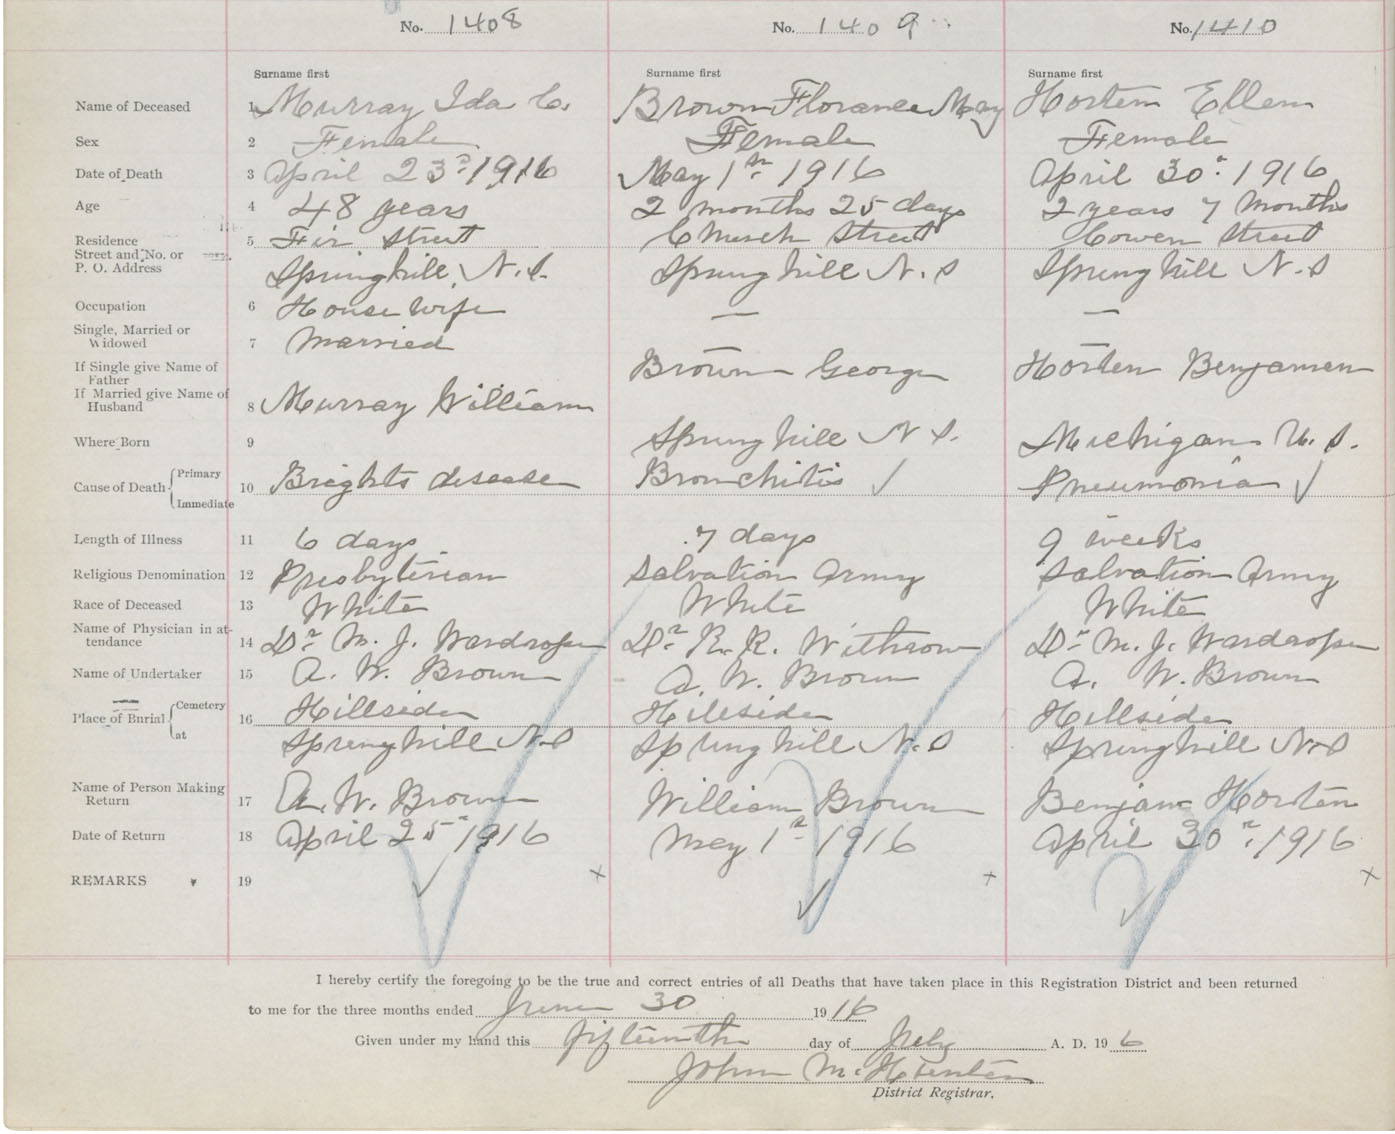 No. 1408 No. 1409 No. 1410
Surname first Surname first Surname first
Name of Deceased 1 Murray Ida C. Brown Florance May Horten Ellen
Sex 2 Female Female Female
Date of Death 3 April 23rd 1916 May 1st 1916 April 30th 1916
Age 4 48 years 2 months 25 days 2 years 7 Months
Residence 5 Fir Street Church Street Cowen Street
Street and No. or
P. O. Address Springhill, N.S. Springhill N.S Springhill N.S
Occupation 6 House wife — —
Single, Married or
Widowed 7 Married —
If Single give Name of
Father Brown George Horten Benjamen
If Married give Name of
Husband 8 Murray William
Where Born 9 Springhill N S. Michigan U.S.
Cause of Death Primary
Immediate 10 Brights disease Bronchitis ✓ Pneumonia ✓
Length of Illness 11 6 days 7 days 9 weeks
Religious Denomination 12 Presbyterian Salvation Army Salvation Army
Race of Deceased 13 White White White
Name of Physician in at-
tendance 14 Dr. M. J. Wardrope Dr. R. R. Withrow Dr. M. J. Wardrope
Name of Undertaker 15 A. W. Brown A. W. Brown A. W. Brown
Place of Burial Cemetery 16 Hillside Hillside Hillside
at Springhill N.S Springhill N.S Springhill N.S
Name of Person Making
Return 17 A. W. Brown William Brown Benjam Horten
Date of Return 18 April 25th 1916 May 1st 1916 April 30th 1916
REMARKS 19 × × ×
✓ ✓ ✓
I hereby certify the foregoing to be the true and correct entries of all Deaths that have taken place in this Registration District and been returned
to me for the three months ended June 30 1916
Given under my hand this fifteenth day of July A. D. 19 6
John Mc
District Registrar.